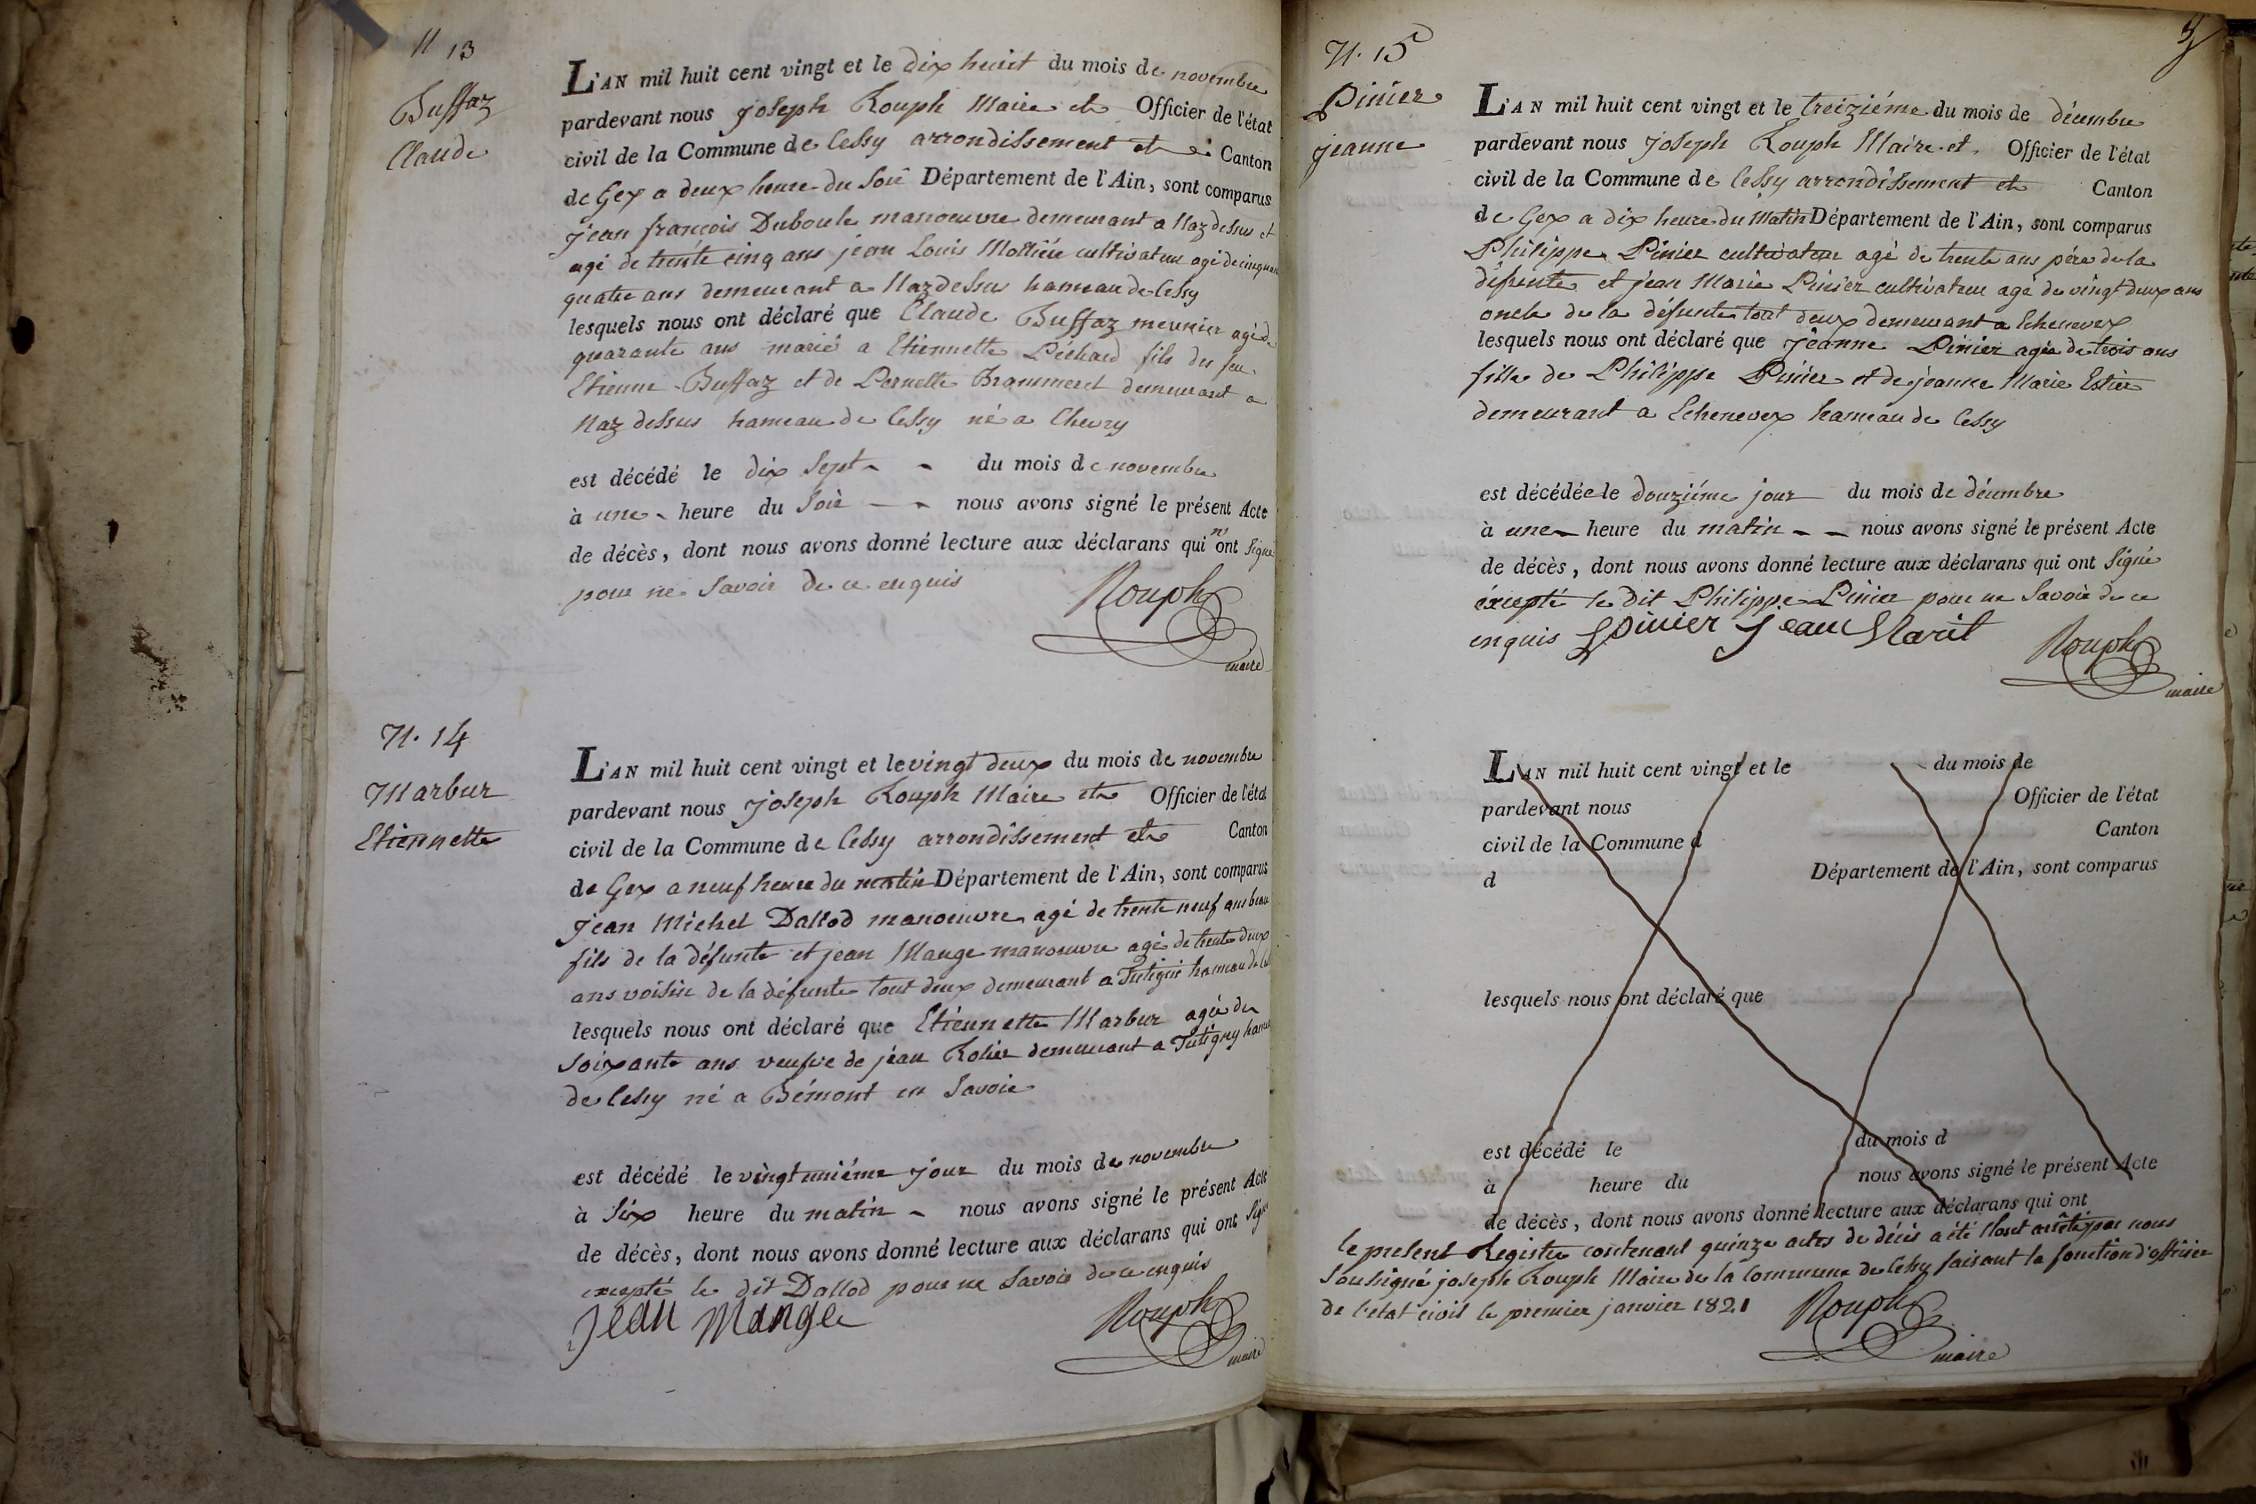 N 13
Buffaz
Claude
L'AN mil huit cent vingt et le dix huit du mois de novembre
pardevant nous joseph Rouph Maire et Officier de l'état
civil de la Commune de Cessy arrondissement et Canton
de Gex a deux heure du soir Département de l'Ain, sont comparus
jean françois Duboule manoeuvre demeurant a Naz dessus et
agé de trente cinq ans jean Louis Mottiér cultivateur agé de cinquante
quatre ans demeurant a Naz dessus hameau de Cessy
lesquels nous ont déclaré que Claude Buffaz meunier agé de
quarante ans marié a Etiennette Péchard fils du feu
Etienne Buffaz et de Pernette Brammeret demeurant a
Naz dessus hameau de Cessy né a Chevry
est décédé le dix sept du mois de novembre
à une heure du soir nous avons signé le présent Acte
de décès, dont nous avons donné lecture aux déclarans qui n'ont signé
pour ne savoir de ce enquis
Rouph
maire
N. 14
Marbur
Etiennette
L'AN mil huit cent vingt et le vingt deux du mois de novembre
pardevant nous joseph Rouph Maire et Officier de l'état
civil de la Commune de Cessy arrondissement et Canton
de Gex a neuf heure du matin Département de l'Ain, sont comparus
jean Michel Dallod manoeuvre agé de trente neuf ans beau
fils de la défunte et jean Mange manoeuvre agé de trente deux
ans voisin de la défunte tout deux demeurant a Tutigni hameau de
lesquels nous ont déclaré que Etiennette Marbur agée de
soixante ans veufve de jean Rolier demeurant a Tutigny hameau
de Cessy né a Bémont en Savoie
est décédé le vingt uniéme jour du mois de novembre
à six heure du matin nous avons signé le présent Acte
de décès, dont nous avons donné lecture aux déclarans qui ont signé
excepté le dit Dallod pour ne savoir de ce enquis
jean Mange
Rouph
maire
N. 15
Pinier
jeanne
L'AN mil huit cent vingt et le treiziéme du mois de décembre
pardevant nous joseph Rouph Maire et Officier de l'état
civil de la Commune de Cessy arrondissement et Canton
de Gex a dix heure du Matin Département de l'Ain, sont comparus
Philippe Pinier cultivateur agé de trente ans pére de la
défunte et jean Marie Pinier cultivateur agé de vingt deux ans
oncle de la défunte tout deux demeurant a Echenevex
lesquels nous ont déclaré que jeanne Pinier agée de trois ans
fille de Philippe Pinier et de jeanne Marie Estier
demeurant a Echenevex hameau de Cessy
est décédée le douziéme jour du mois de décembre
à une heure du matin nous avons signé le présent Acte
de décès, dont nous avons donné lecture aux déclarans qui ont signé
éxcepté le dit Philippe Pinier pour ne savoir de ce
enquis Pinier jean Marit
Rouph
maire
L'AN mil huit cent vingt et le du mois de
pardevant nous Officier de l'état
civil de la Commune d Canton
d Département de l'Ain, sont comparus
lesquels nous ont déclaré que
est décédé le du mois d
à heure du nous avons signé le présent Acte
de décès, dont nous avons donné lecture aux déclarans qui ont
le present Registre contenant quinze actes de décés a été clout arrêté par nous
Sousigné joseph Rouph Maire de la commune de Cessy faisant la fonction d'officier
de l'etat civil le premier janvier 1821
Rouph
maire